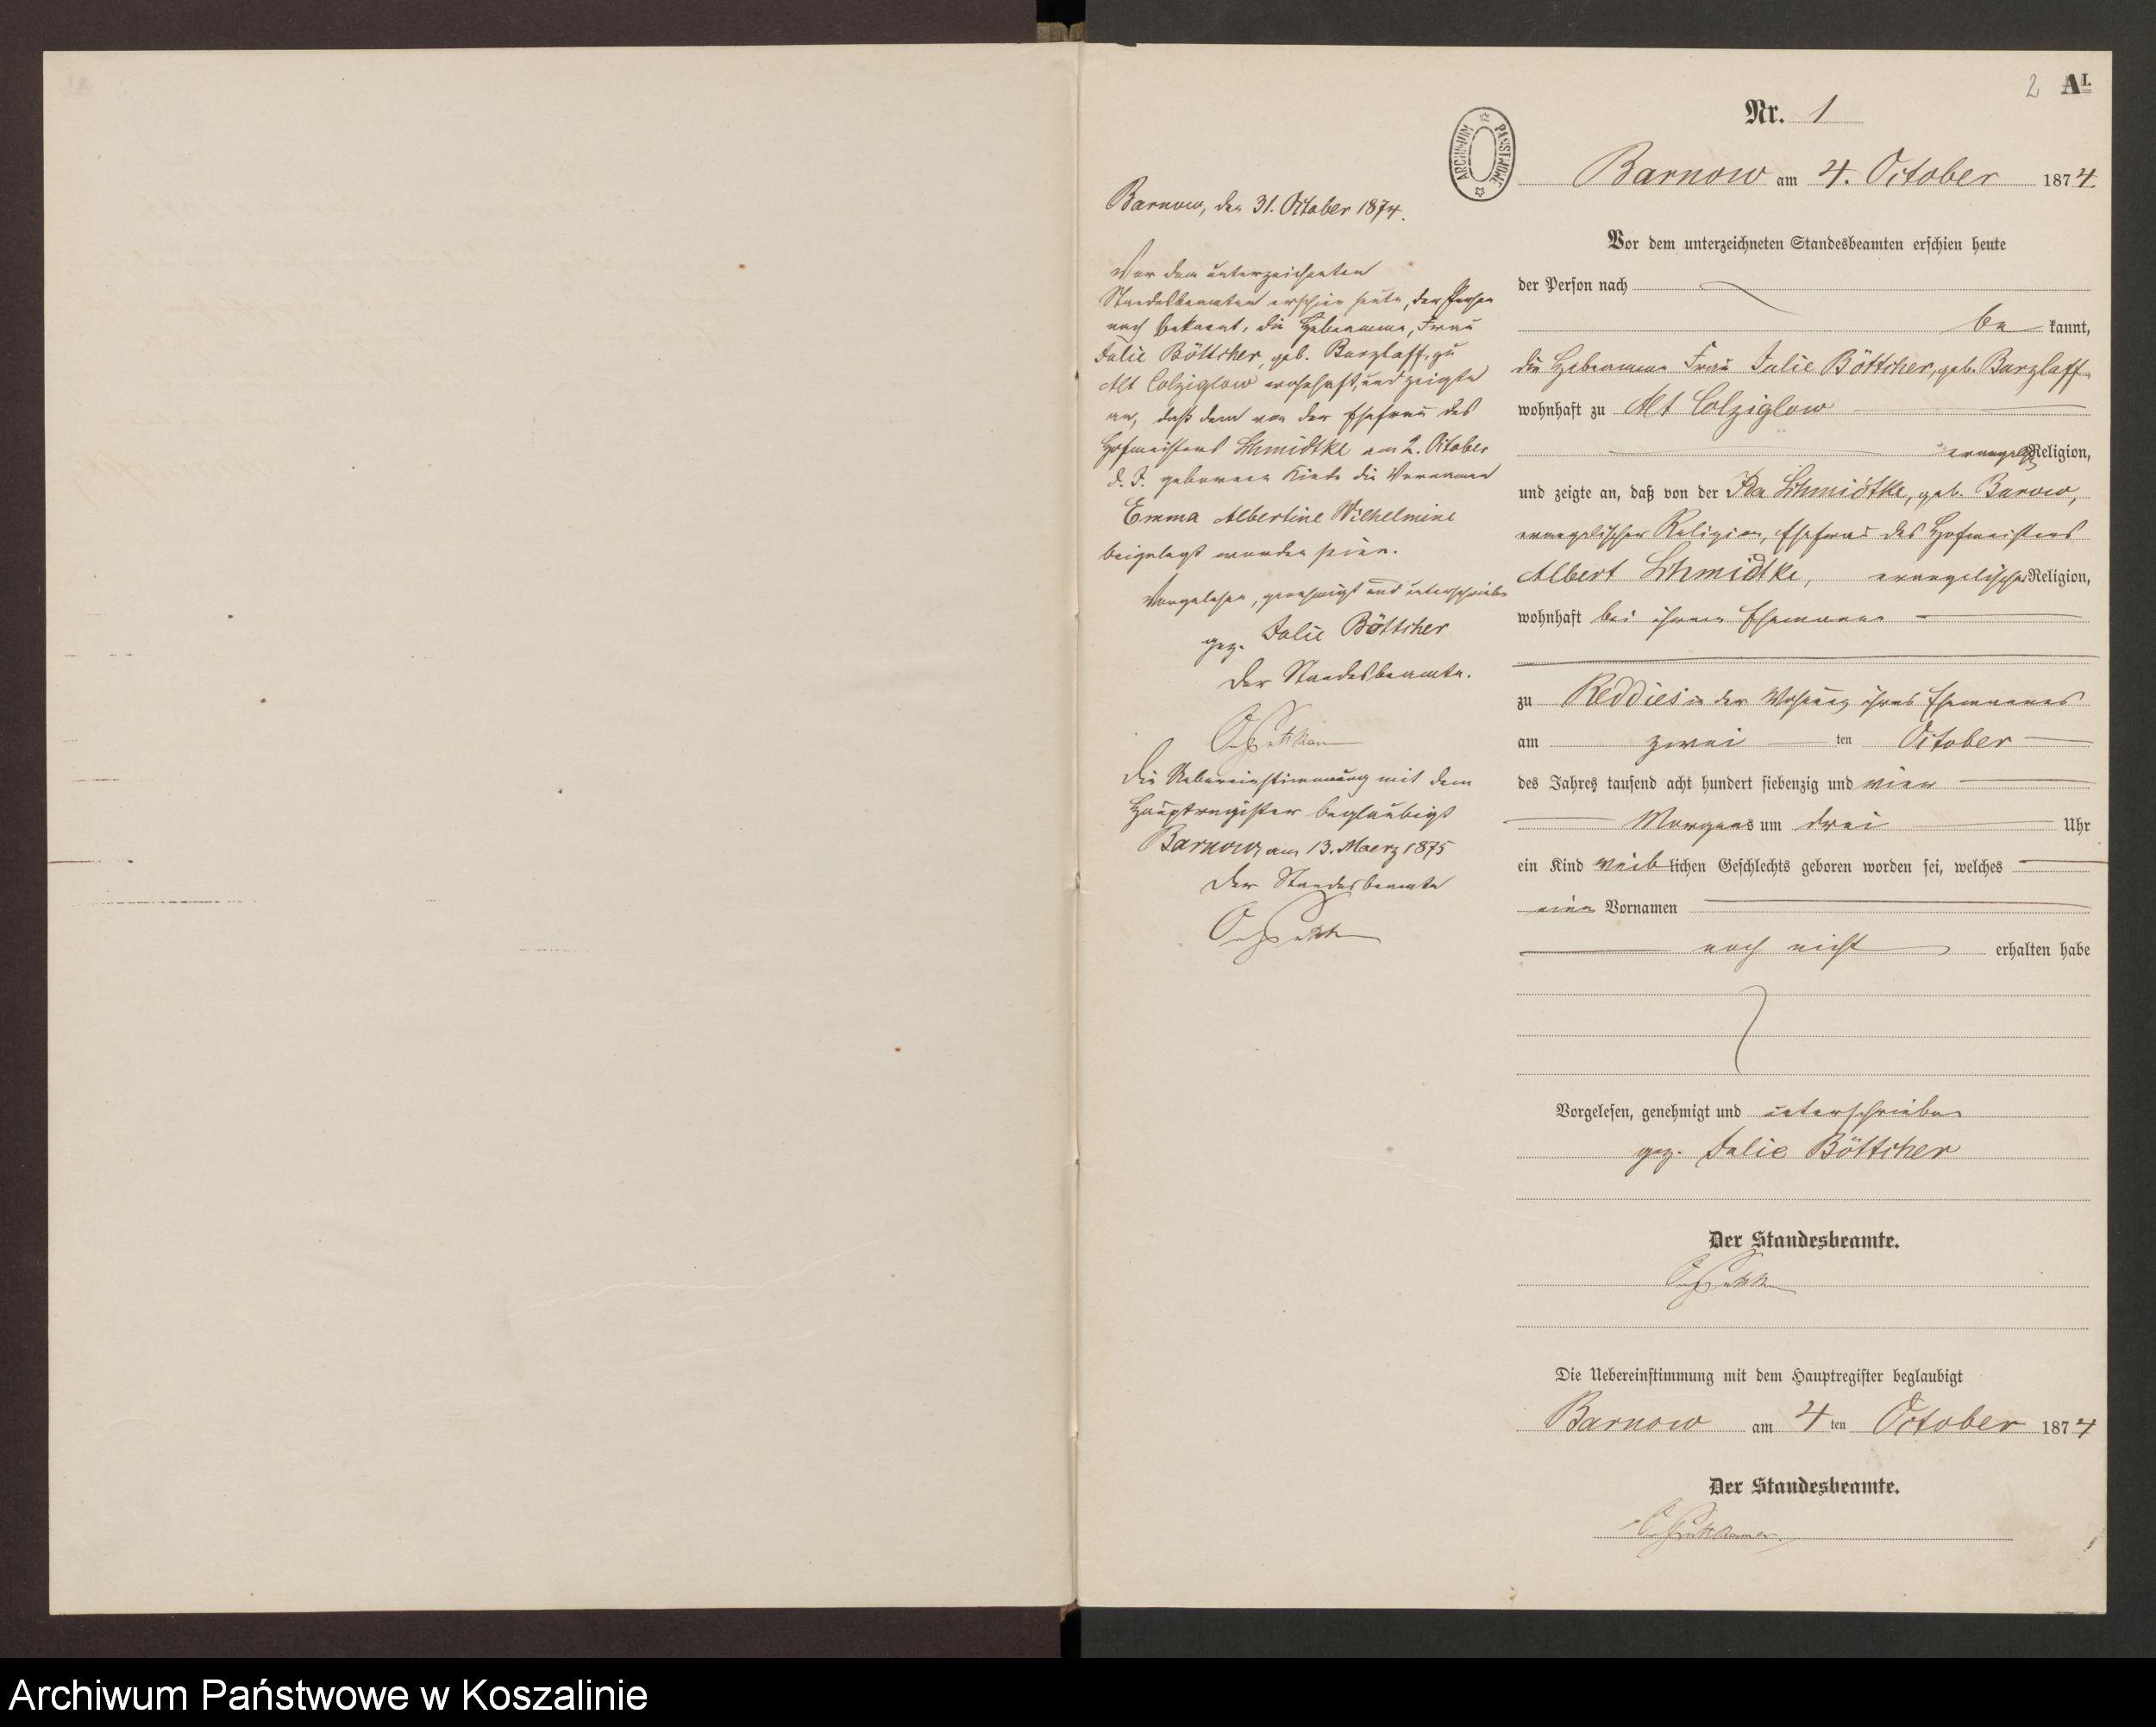 2 A I.
Nr. 1
ARCHIWUM PAŃSTWOWE
Barnow am 4. October 1874.
Vor dem unterzeichneten Standesbeamten erschien heute
der Person nach
be kannt,
die Hebeamme Frau Julie Böttcher, geb. Barzlaff
wohnhaft zu Alt Colziglow
evangelischer Religion,
und zeigte an, daß von der Ida Schmidtke, geb. Barow,
evangelischer Religion, Ehefrau des Hofmeisters
Albert Schmidtke, evangelischer Religion,
wohnhaft bei ihrem Ehemanne
zu Reddies in der Wohnung ihres Ehemannes
am zwei ten October
des Jahres tausend acht hundert siebenzig und vier
Morgens um drei Uhr
ein Kind weib lichen Geschlechts geboren worden sei, welches
einen Vornamen
noch nicht erhalten habe
Vorgelesen, genehmigt und unterschrieben
gez. Julie Böttcher
Der Standesbeamte.
Die Uebereinstimmung mit dem Hauptregister beglaubigt
Barnow am 4 ten October 1874
Der Standesbeamte.
Barnow, den 31. October 1874.
Vor dem unterzeichneten
Standesbeamten erschien heute, der Person
nach bekannt, die Hebeamme, Frau
Julie Böttcher, geb. Barzlaff, zu
Alt Colziglow wohnhaft, und zeigte
an, daß dem von der Ehefrau des
Hofmeisters Schmidtke am 2. October
d. J. geborenen Kinde die Vornamen
Emma Albertine Wilhelmine
beigelegt worden seien.
Vorgelesen, genehmigt und unterschrieben
gez. Julie Böttcher
Der Standesbeamte.
Die Uebereinstimmung mit dem
Hauptregister beglaubigt
Barnow, am 13. Maerz 1875
Der Standesbeamte
Archiwum Państwowe w Koszalinie